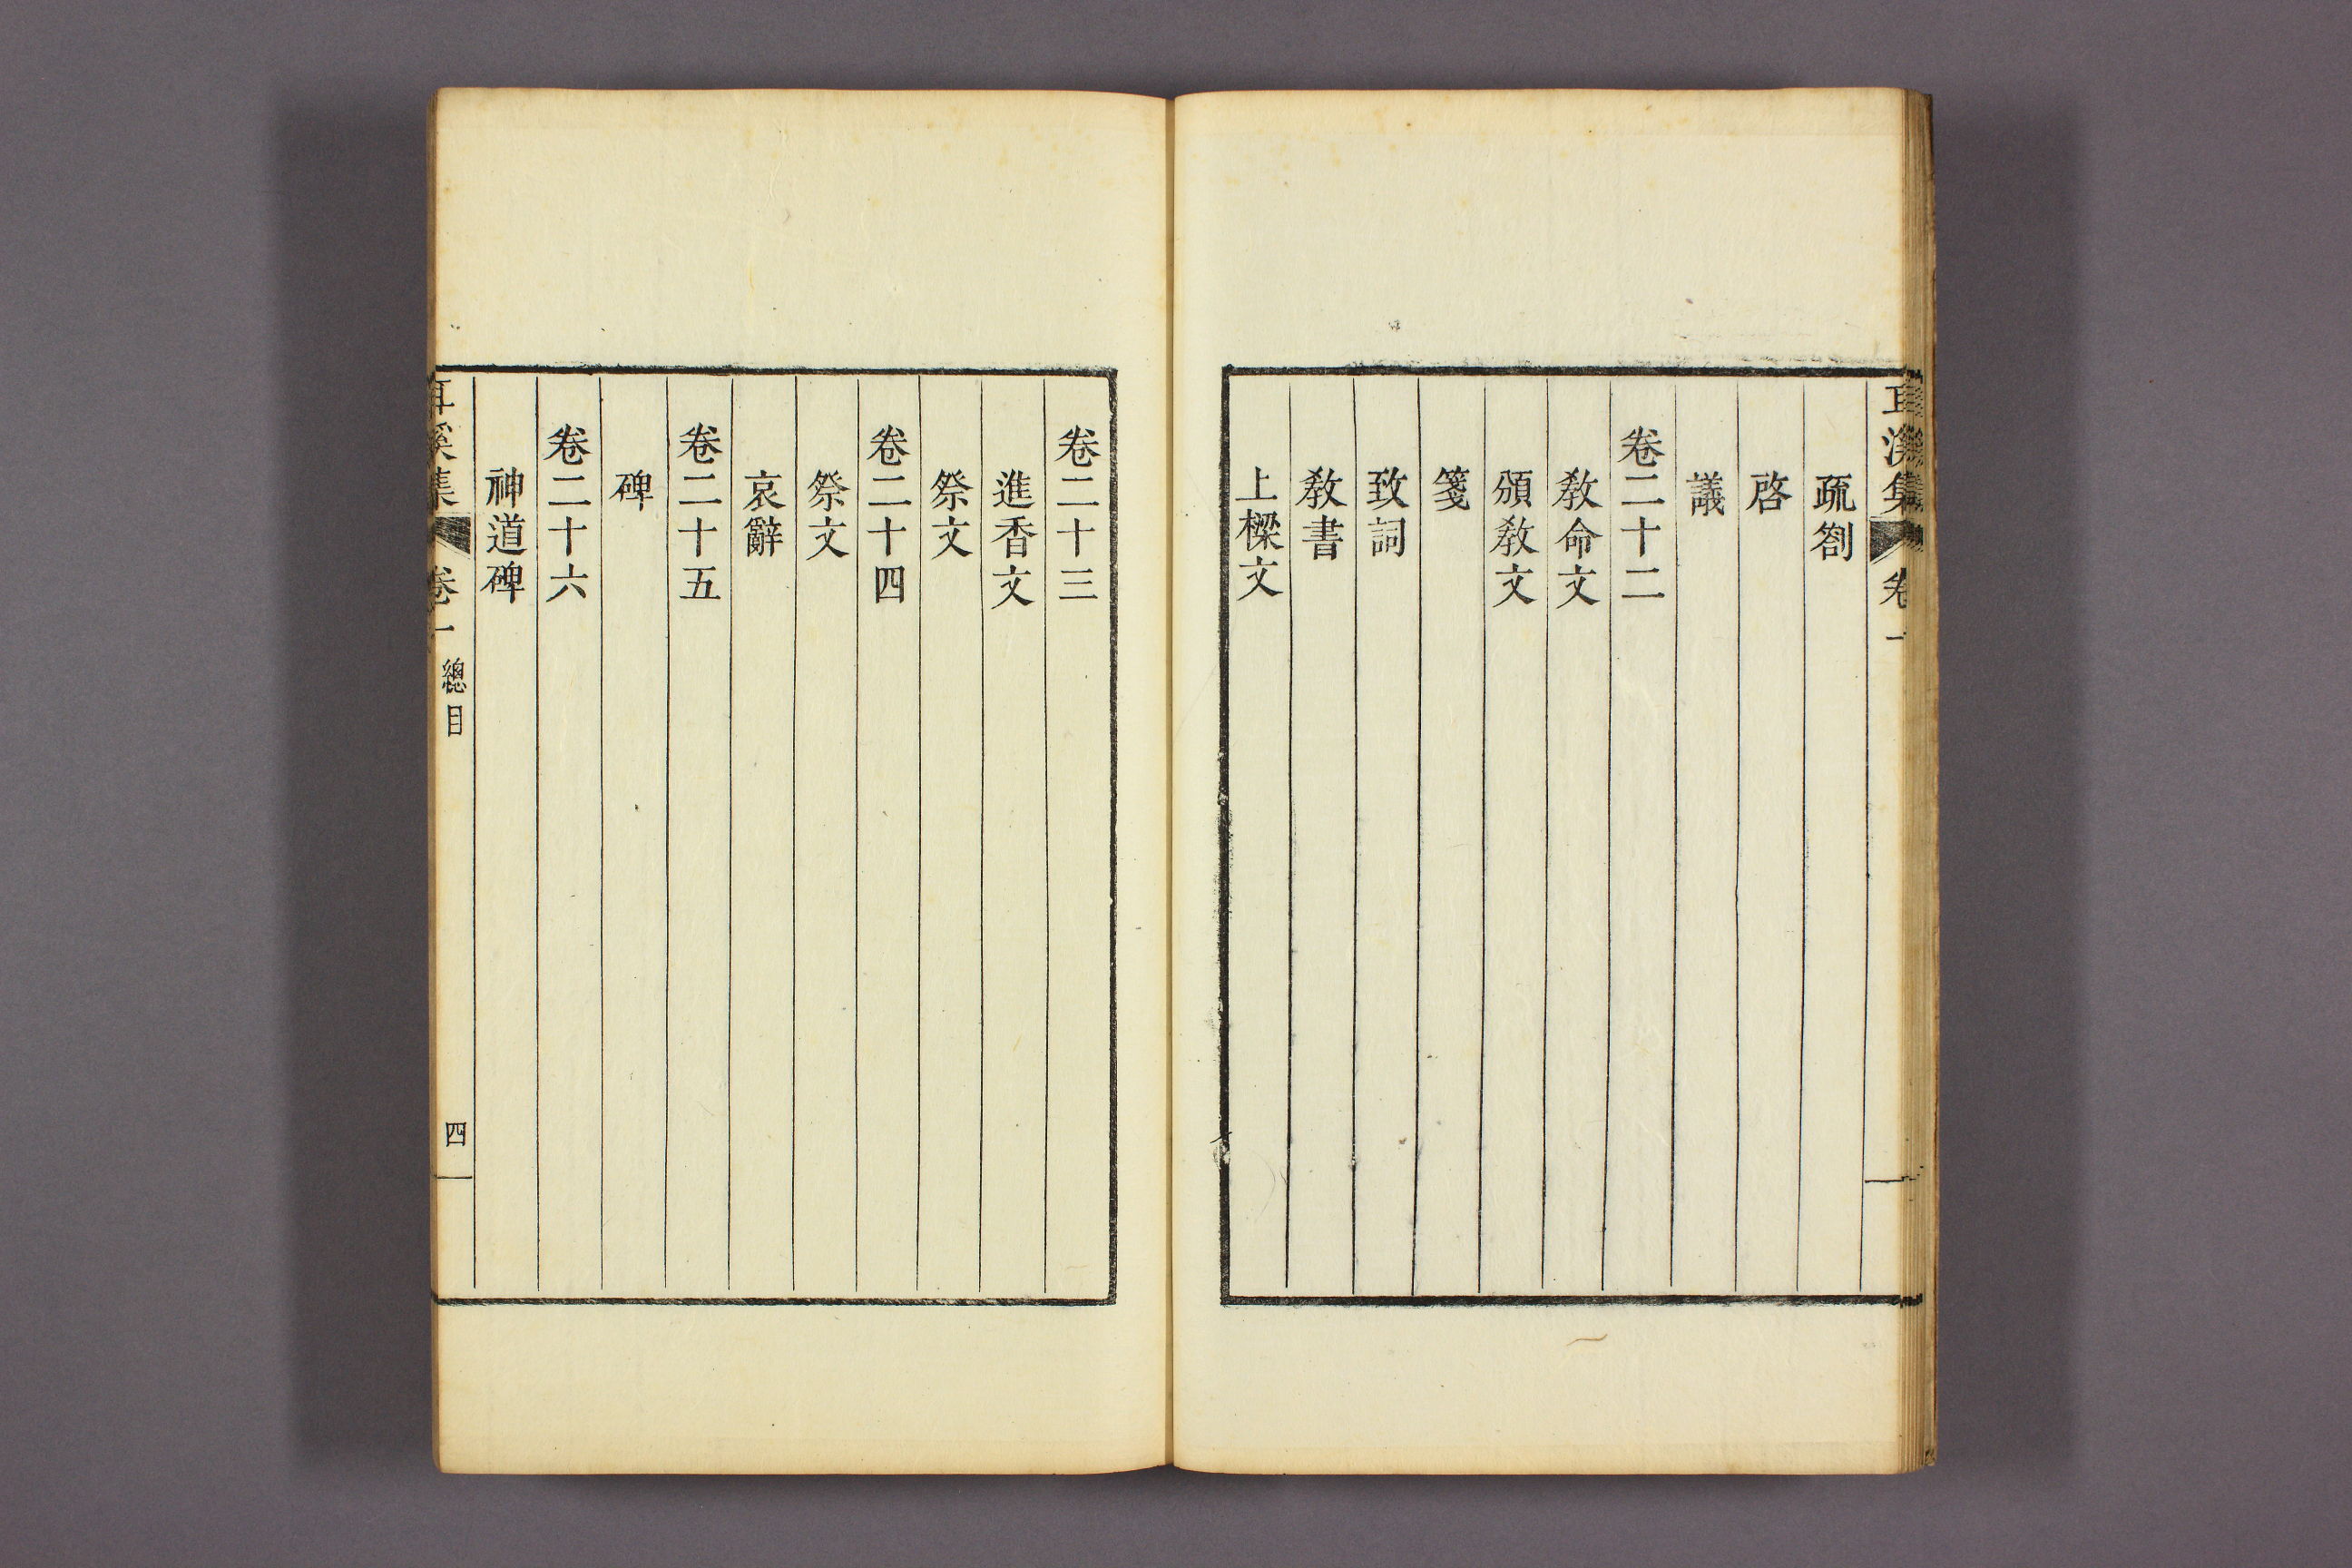 耳溪集 卷一
疏劄
啓
議
卷二十二
敎命文
頒敎文
箋
致詞
敎書
上樑文
卷二十三
進香文
祭文
卷二十四
祭文
哀辭
卷二十五
碑
卷二十六
神道碑
耳溪集 卷一 總目 四